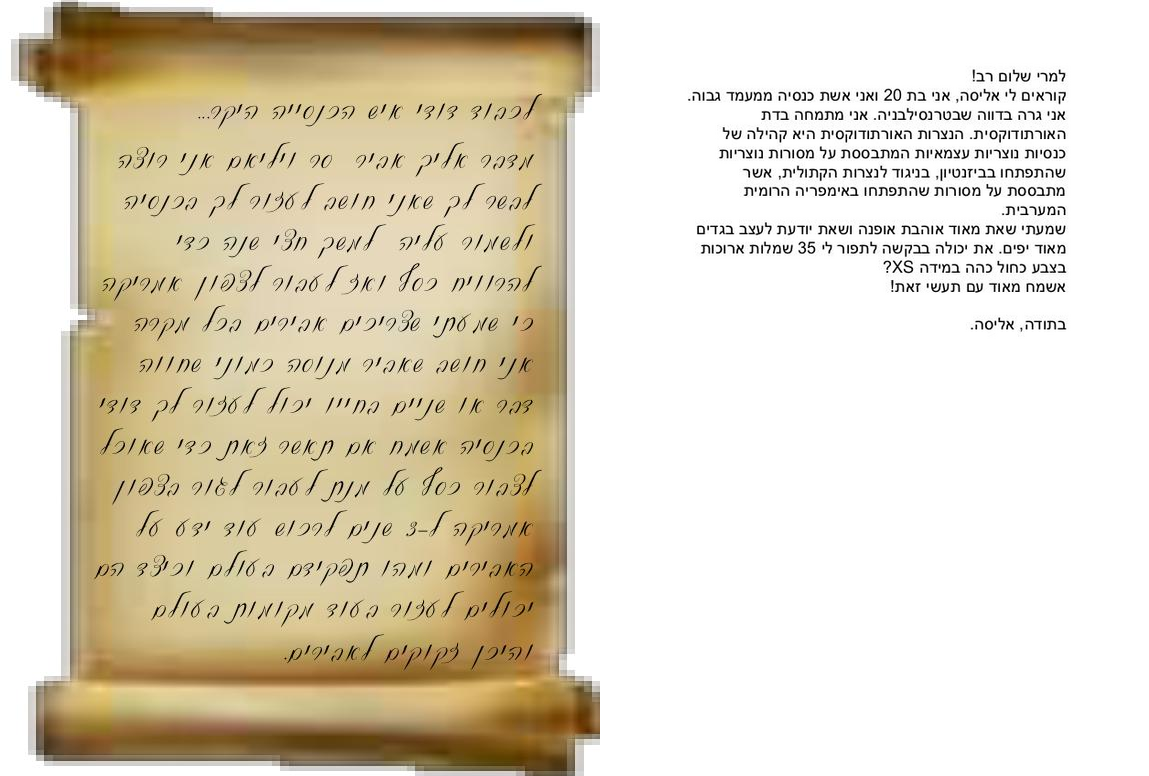 לכבוד דודי איש הכנסייה היקר...
מדבר אליך אביר סר ויליאם אני רוצה
לבשר לך שאני חושב לעזור לך בכנסיה
ולשמור עליה למשך חצי שנה כדי
להרוויח כסף ואז לעבור לצפון אמריקה
כי שמעתי שצריכים אבירים בכל מקרה
אני חושב שאביר מנוסה כמוני שחווה
דבר או שניים בחייו יכול לעזור לך דודי
בכנסיה אשמח אם תאשר זאת כדי שאוכל
לצבור כסף על מנת לעבור לגור בצפון
אמריקה ל-3 שנים לרכוש עוד ידע על
האבירים ומהו תפקידם בעולם וכיצד הם
יכולים לעזור בעוד מקומות בעולם
והיכן זקוקים לאבירים.
למרי שלום רב!
קוראים לי אליסה, אני בת 20 ואני אשת כנסיה ממעמד גבוה.
אני גרה בדווה שבטרנסילבניה. אני מתמחה בדת
האורתודוקסית. הנצרות האורתודוקסית היא קהילה של
כנסיות נוצריות עצמאיות המתבססת על מסורות נוצריות
שהתפתחו בביזנטיון, בניגוד לנצרות הקתולית, אשר
מתבססת על מסורות שהתפתחו באימפריה הרומית
המערבית.
שמעתי שאת מאוד אוהבת אופנה ושאת יודעת לעצב בגדים
מאוד יפים. את יכולה בבקשה לתפור לי 35 שמלות ארוכות
בצבע כחול כהה במידה XS?
אשמח מאוד עם תעשי זאת!
בתודה, אליסה.